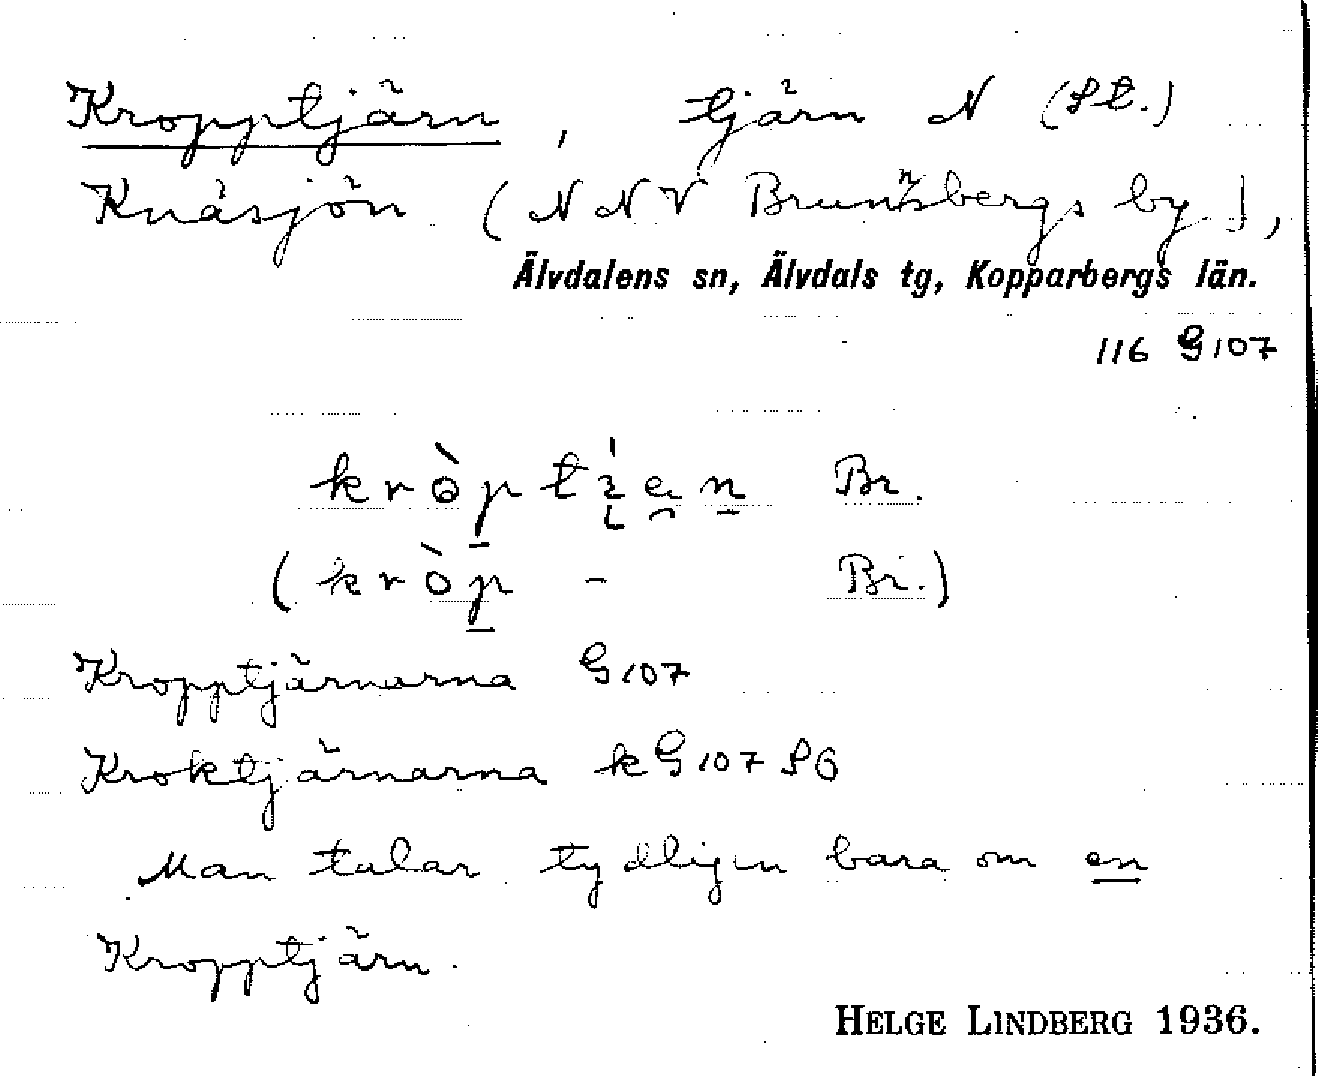 Kropptjärn, tjärn N (St.)
Knåsjön (N N V Brunnsbergs by),
Älvdalens sn, Älvdals tg, Kopparbergs län.
116 G107
Br.
(kròp - Br.)
Kropptjärnarna G107
Kroktjärnarna k G107 S6
Man talar tydligen bara om en
Kropptjärn.
HELGE LINDBERG 1936.